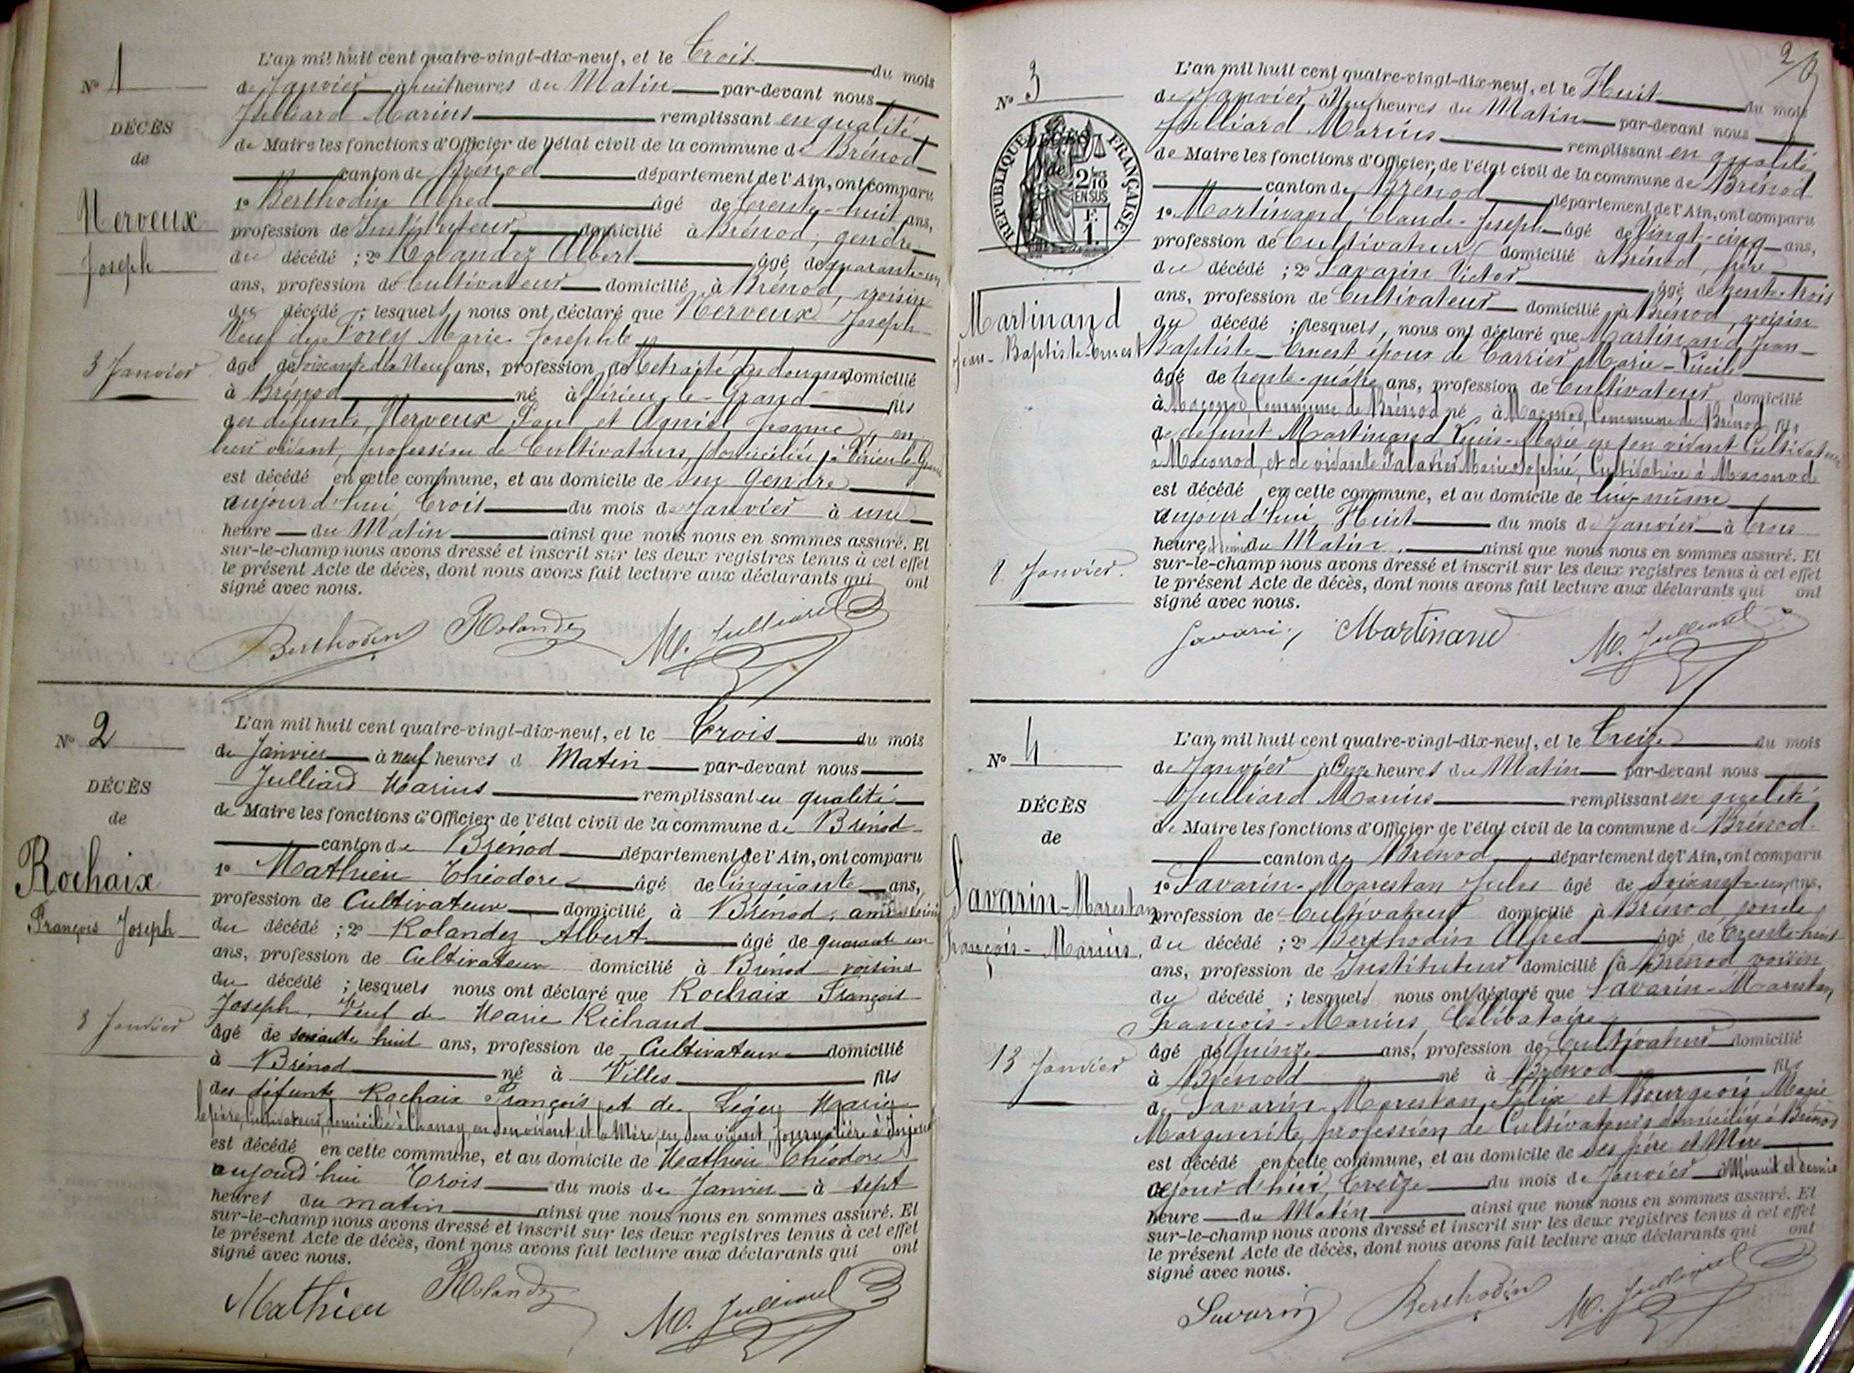 N° 1
DÉCÈS
de
Nerveux
Joseph
3 Janvier
L'an mil huit cent quatre-vingt-dix-neuf, et le Trois du mois
de Janvier à huit heures du Matin par-devant nous
Julliard Marius remplissant en qualité
de Maire les fonctions d'Officier de l'état civil de la commune de Brénod
canton de Brénod département de l'Ain, ont comparu
1° Berthodin Alfred âgé de trente-huit ans,
profession de Instituteur domicilié à Brénod, gendre
du décédé ; 2° Rolandez Albert âgé de quarante-un
ans, profession de Cultivateur domicilié à Brénod, voisin
du décédé ; lesquels nous ont déclaré que Nerveux Joseph
Veuf de Marie Josephte
âgé de soixante dix Neuf ans, profession de Retraité des douanes domicilié
à Brénod né à Virieu-le-Grand fils
des défunts Nerveux Paul et Jeanne, en
leur vivant, profession de Cultivateurs, domiciliés à Virieu-le-Grand
est décédé en cette commune, et au domicile de son Gendre
aujourd'hui Trois du mois de Janvier à une
heure du Matin ainsi que nous nous en sommes assuré. Et
sur-le-champ nous avons dressé et inscrit sur les deux registres tenus à cet effet
le présent Acte de décès, dont nous avons fait lecture aux déclarants qui ont
signé avec nous.
Berthodin Rolandez M. Julliard
N° 2
DÉCÈS
de
Rochaix
François Joseph
3 Janvier
L'an mil huit cent quatre-vingt-dix-neuf, et le Trois du mois
de Janvier à neuf heures d Matin par-devant nous
Julliard Marius remplissant en qualité
de Maire les fonctions d'Officier de l'état civil de la commune de Brénod
canton de Brénod département de l'Ain, ont comparu
1° Mathieu Théodore âgé de Cinquante ans,
profession de Cultivateur domicilié à Brénod, ami
du décédé ; 2° Rolandez Albert âgé de quarante un
ans, profession de Cultivateur domicilié à Brénod voisins
du décédé ; lesquels nous ont déclaré que Rochaix François
Joseph, Veuf de Marie Richaud
âgé de soixante huit ans, profession de Cultivateur domicilié
à Brénod né à Villes fils
des défunts Rochaix François et de Léger Marie
le père, Cultivateur, domicilié à Chanay, en son vivant, et la Mère, en son vivant, Journalière à
est décédé en cette commune, et au domicile de Mathieu Théodore
aujourd'hui Trois du mois de Janvier à sept
heures du matin ainsi que nous nous en sommes assuré. Et
sur-le-champ nous avons dressé et inscrit sur les deux registres tenus à cet effet
le présent Acte de décès, dont nous avons fait lecture aux déclarants qui ont
signé avec nous.
Mathieu Rolandez M. Julliard
2
N° 3
DÉCÈS
de
RÉPUBLIQUE FRANÇAISE
2/10 EN SUS
F. 1.
Martinand
Jean-Baptiste-Ernest
8 Janvier.
L'an mil huit cent quatre-vingt-dix-neuf, et le Huit du mois
de Janvier à Neuf heures du Matin par-devant nous
Julliard Marius remplissant en qualité
de Maire les fonctions d'Officier de l'état civil de la commune de Brénod
canton de Brénod département de l'Ain, ont comparu
1° Martinand Claude-Joseph âgé de vingt-cinq ans,
profession de Cultivateur domicilié à Brénod, frère
du décédé ; 2° Savarin Victor âgé de trente-trois
ans, profession de Cultivateur domicilié à Brénod, voisin
du décédé ; lesquels nous ont déclaré que Martinand Jean-
Baptiste-Ernest époux de Carrier Marie-Lucile
âgé de trente-quatre ans, profession de Cultivateur domicilié
à Maconod Commune de Brénod né à Maconod, Commune de Brénod fils
de défunt Martinand Louis-Marie en son vivant Cultivateur
à Maconod, et de vivante Marie Sophie, Cultivatrice à Maconod
est décédé en cette commune, et au domicile de lui-même
aujourd'hui Huit du mois de Janvier à trois
heure et demie du Matin, ainsi que nous nous en sommes assuré. Et
sur-le-champ nous avons dressé et inscrit sur les deux registres tenus à cet effet
le présent Acte de décès, dont nous avons fait lecture aux déclarants qui ont
signé avec nous.
Savarin Martinand M. Julliard
N° 4
DÉCÈS
de
Savarin-Marestan
François-Marius.
13 Janvier
L'an mil huit cent quatre-vingt-dix-neuf, et le Treize du mois
de Janvier à Onze heures du Matin par-devant nous
Julliard Marius remplissant en qualité
de Maire les fonctions d'Officier de l'état civil de la commune de Brénod.
canton de Brénod département de l'Ain, ont comparu
1° Savarin-Marestan Jules âgé de soixante-un ans,
profession de Cultivateur domicilié à Brénod oncle
du décédé ; 2° Berthodin Alfred âgé de trente-huit
ans, profession de Instituteur domicilié à Brénod voisin
du décédé ; lesquels nous ont déclaré que Savarin-Marestan
François-Marius, Célibataire
âgé de Quinze ans, profession de Cultivateur domicilié
à Brénod né à Brénod fils
de Savarin-Marestan Félix et Bourgeois Marie
Marguerite, profession de Cultivateurs domiciliés à Brénod
est décédé en cette commune, et au domicile de ses père et Mère
aujourd'hui Treize du mois de Janvier à Minuit et demie
heure du Matin ainsi que nous nous en sommes assuré. Et
sur-le-champ nous avons dressé et inscrit sur les deux registres tenus à cet effet
le présent Acte de décès, dont nous avons fait lecture aux déclarants qui ont
signé avec nous.
Savarin Berthodin M. Julliard